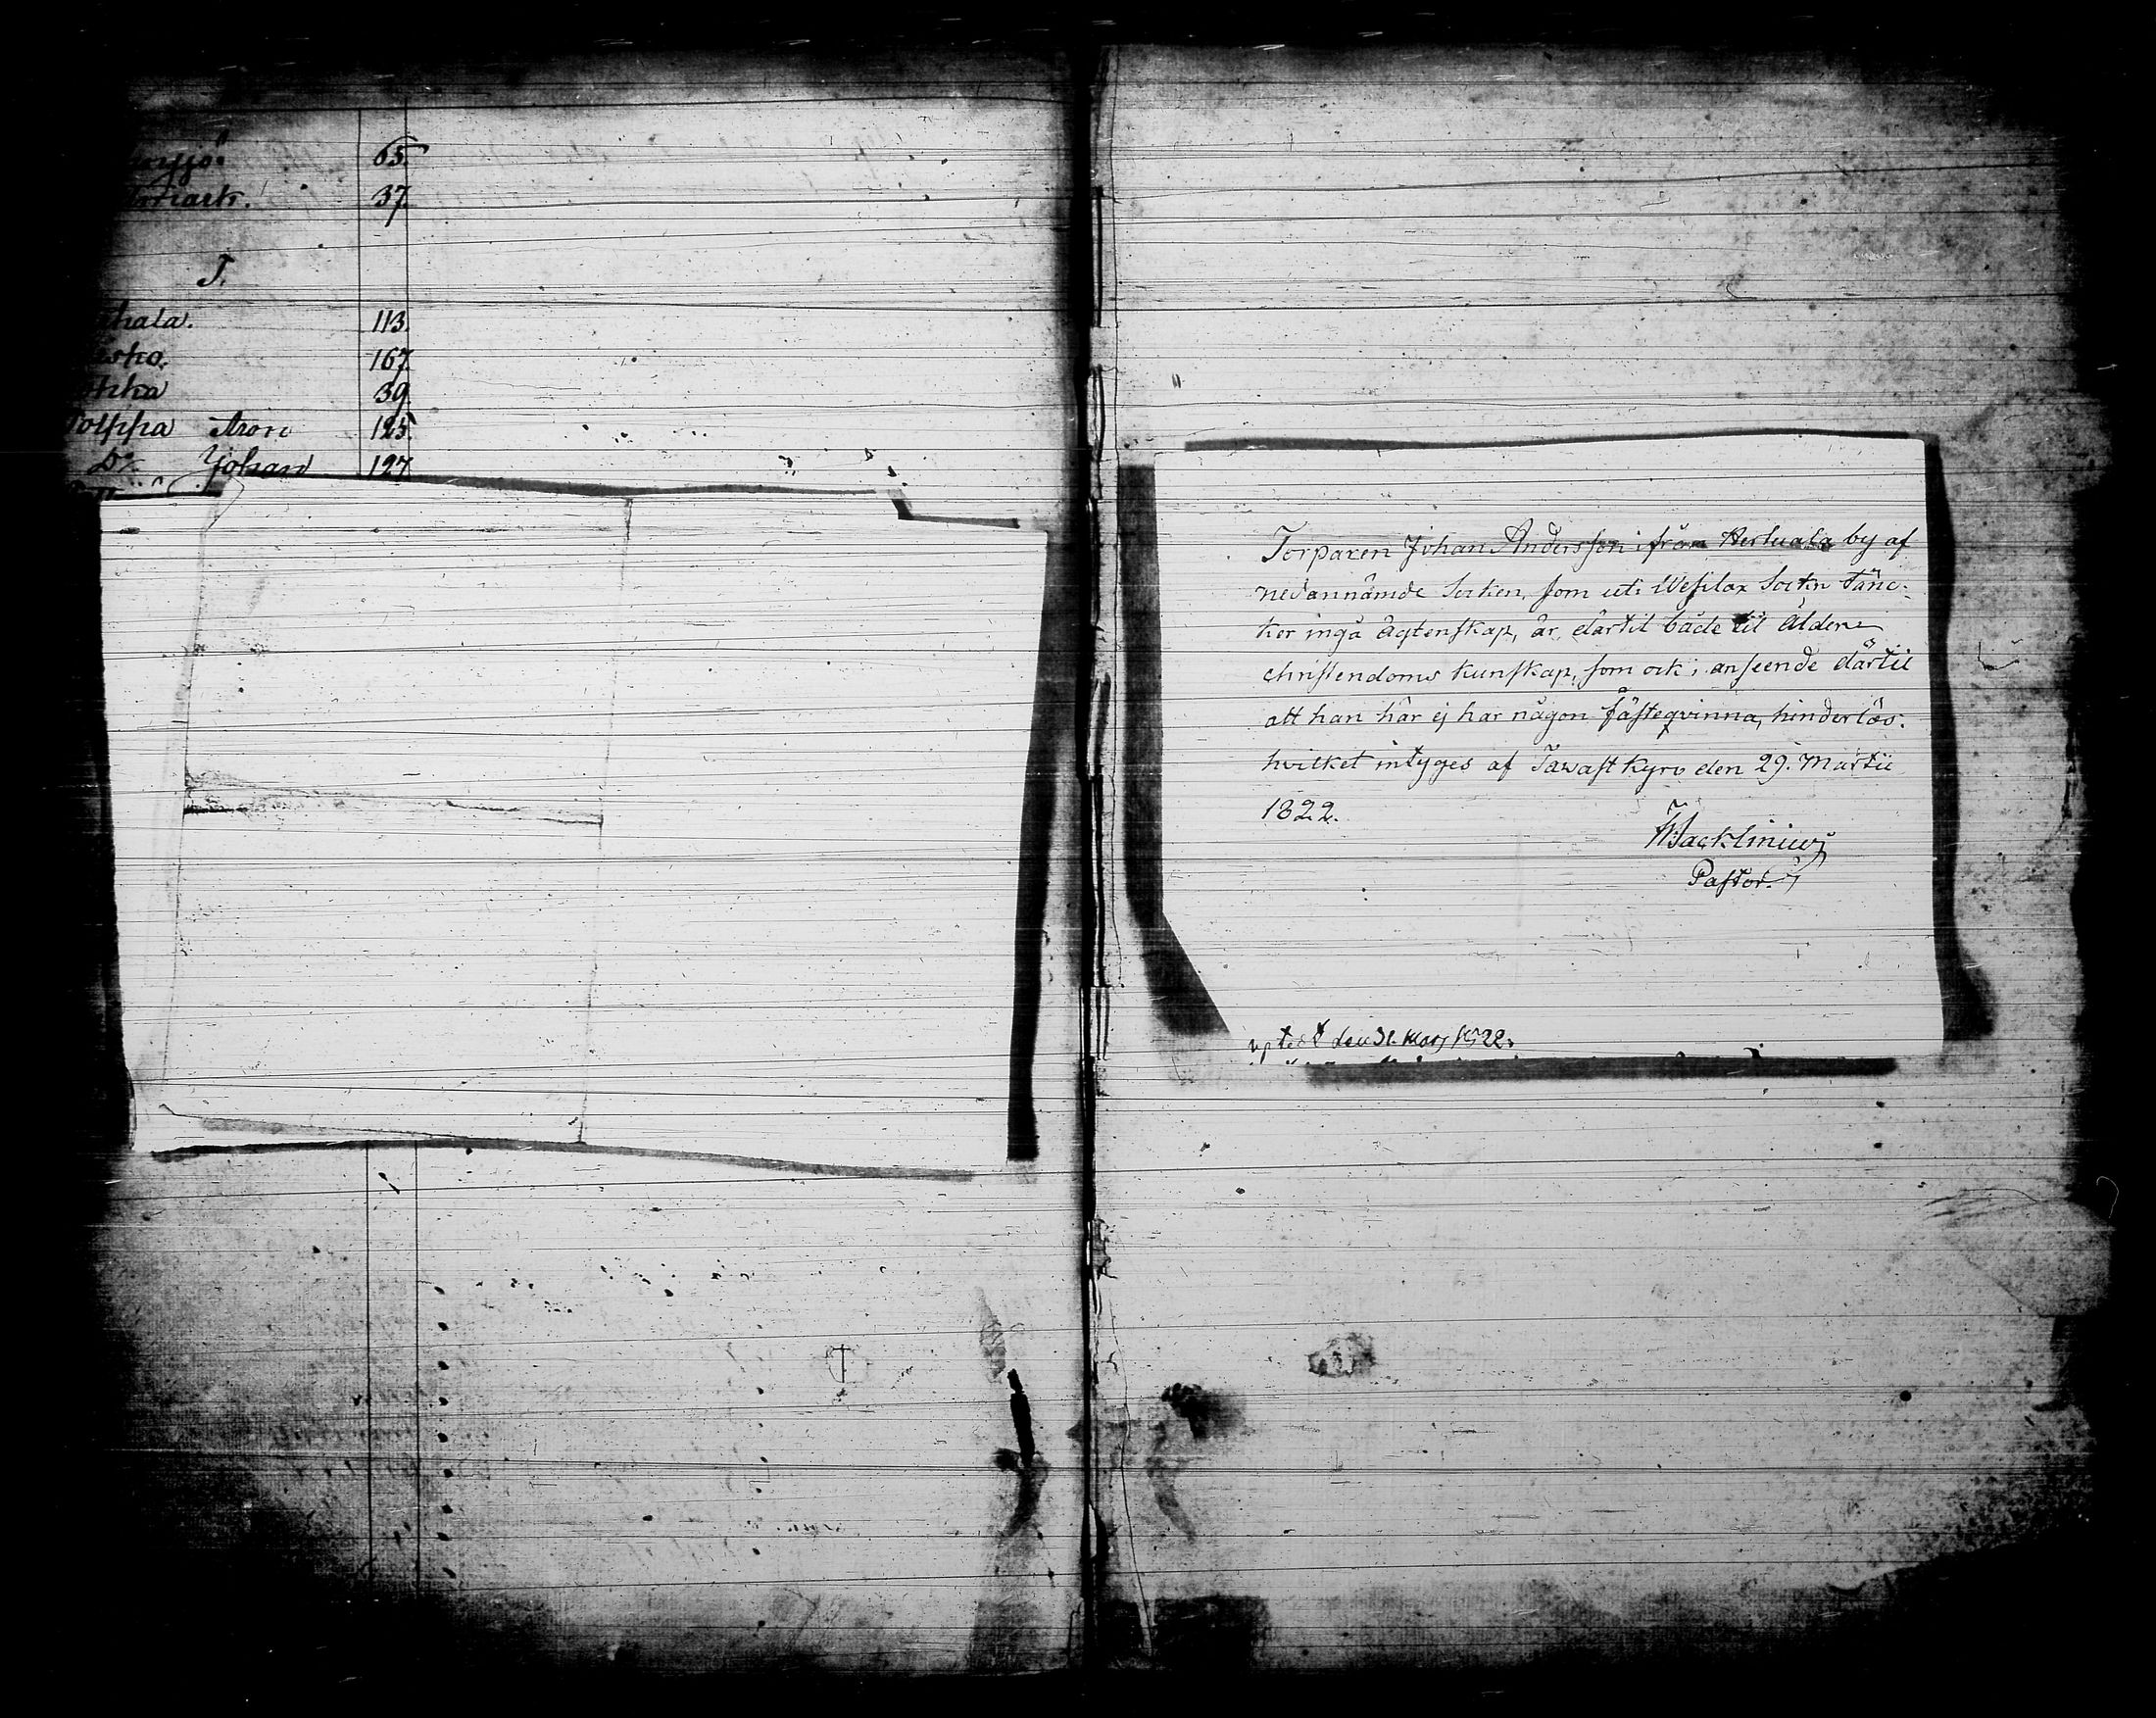 65.
37.
T.
113.
167.
39.
Aron 125.
D:o Johan 127.
Torparen Johan Andersson ifrån Hertuala by af
nedannämde Socken, som uti Wesilax Sockn tänc-
ker ingå Ägtenskap, är därtil både til Ålder
christendoms kunskap, som ock i anseende därtil
att han här ej har någon fästeqvinna, hinderlös.
hvilket intyges af Tawastkyro den 29. Martii
1822.
Wacklinius
Pastor.
uptedt den 31. Mars 1822.